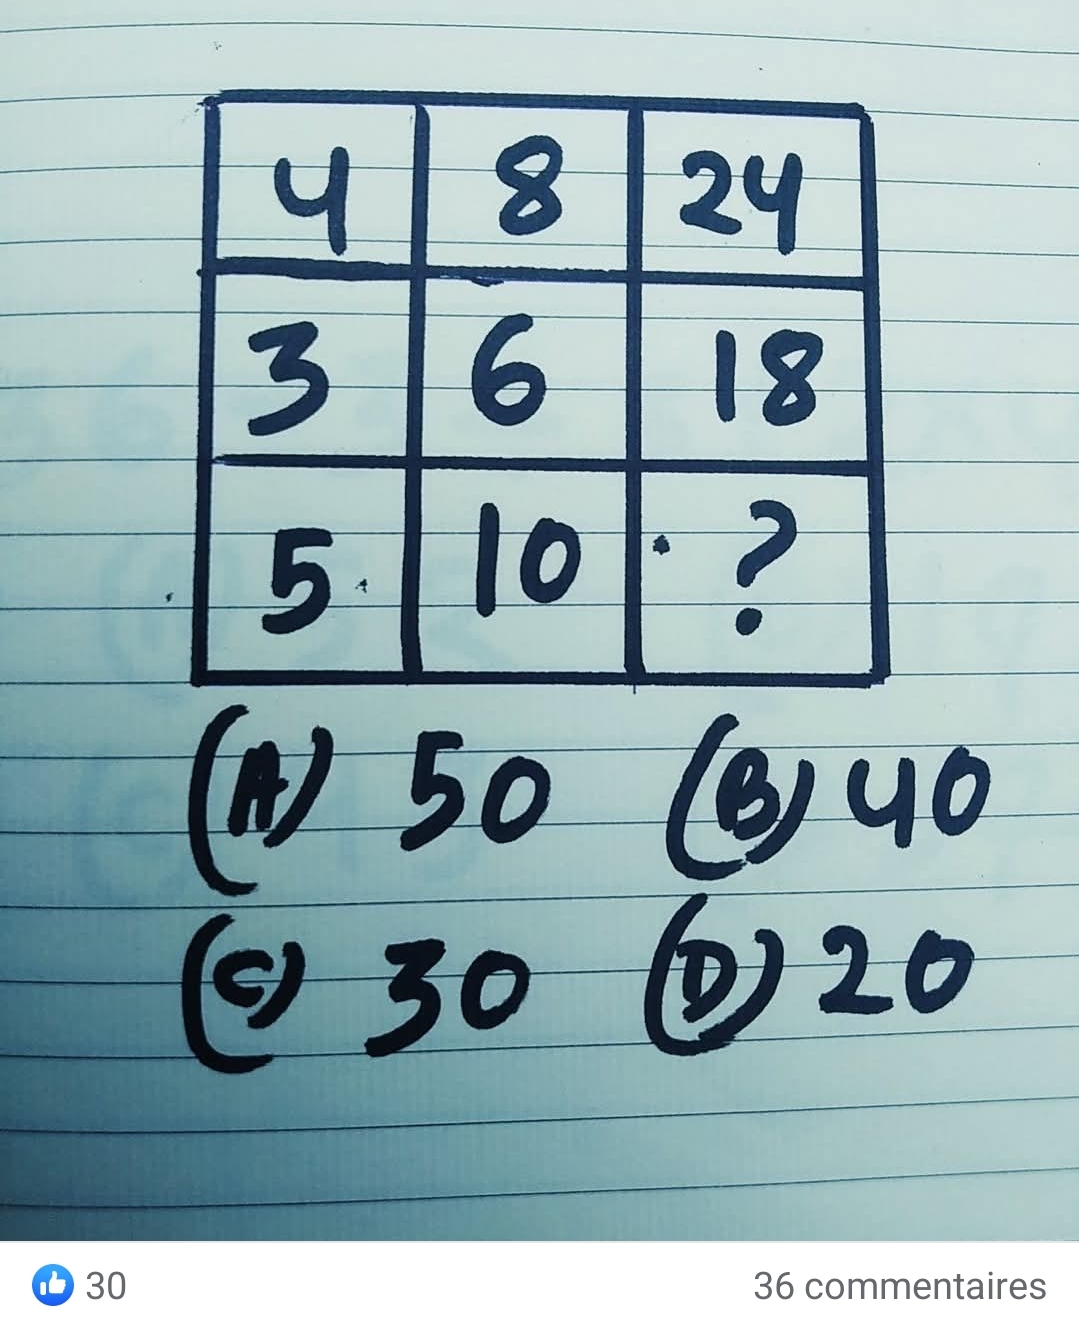 4 8 24
3 6 18
5 10 ?
(A) 50 (B) 40
(C) 30 (D) 20
30 36 commentaires